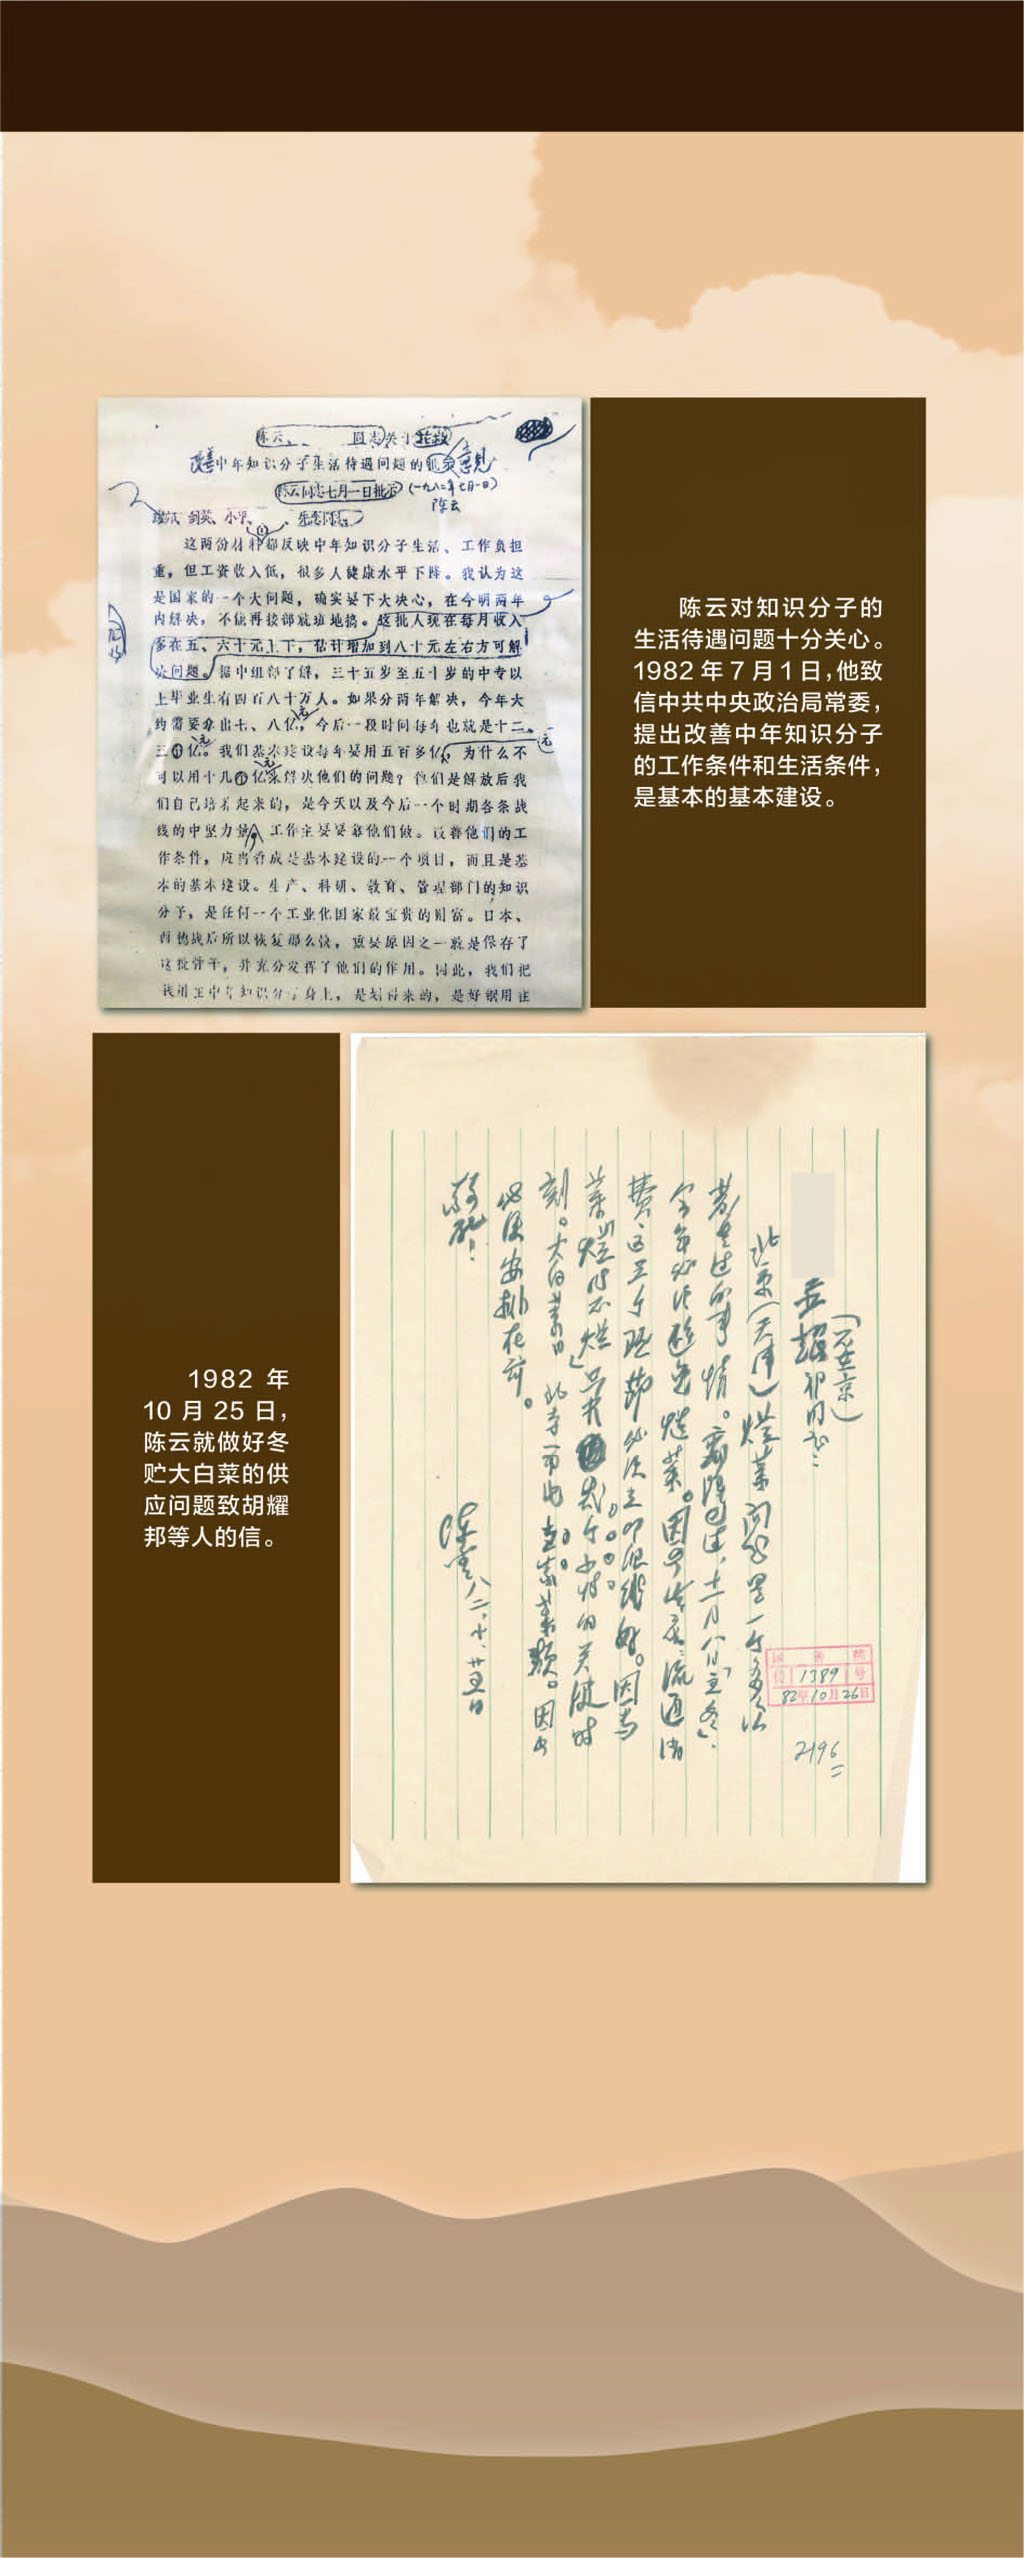 改善中年知识分子生活待遇问题的意见
陈云同志七月一日批示（一九八二年七月一日）
陈云
剑英、小平、
这两份材料都反映中年知识分子生活、工作负担
重，但工资收入低，很多人健康水平下降。我认为这
是国家的一个大问题，确实要下大决心，在今明两年
内解决，不能再按部就班地搞。这批人现在每月收入
多在五、六十元上下，估计增加到八十元左右方可解
决问题。据中组部了解，三十五岁至五十岁的中专以
上毕业生有四百八十万人。如果分两年解决，今年大
约需要拿出七、八亿元，今后一段时间每年也就是十二、
三亿元。我们基本建设每年要用五百多亿元，为什么不
可以用十几亿元来解决他们的问题？他们是解放后我
们自己培养起来的，是今天以及今后一个时期各条战
线的中坚力量，工作主要要靠他们做。改善他们的工
作条件，应当看成是基本建设的一个项目，而且是基
本的基本建设。生产、科研、教育、管理部门的知识
分子，是任何一个工业化国家最宝贵的财富。日本、
西德战后所以恢复那么快，重要原因之一就是保存了
这批骨干，并充分发挥了他们的作用。因此，我们把
钱用在中年知识分子身上，是划得来的，是好钢用在
陈云对知识分子的
生活待遇问题十分关心。
1982 年 7 月 1 日，他致
信中共中央政治局常委，
提出改善中年知识分子
的工作条件和生活条件，
是基本的基本建设。
1982 年
10 月 25 日，
陈云就做好冬
贮大白菜的供
应问题致胡耀
邦等人的信。
（不在京）
北京（天津）烂菜问题是一个多次
发生过的事情。
费，这三个环节必须立即组织好。因为
菜烂时不烂」
刻。大白菜是北京市的当家菜。因此
必须安排在前。
敬礼！
陈云 八二、十、廿五日
1389 号
82年10月26日
2196